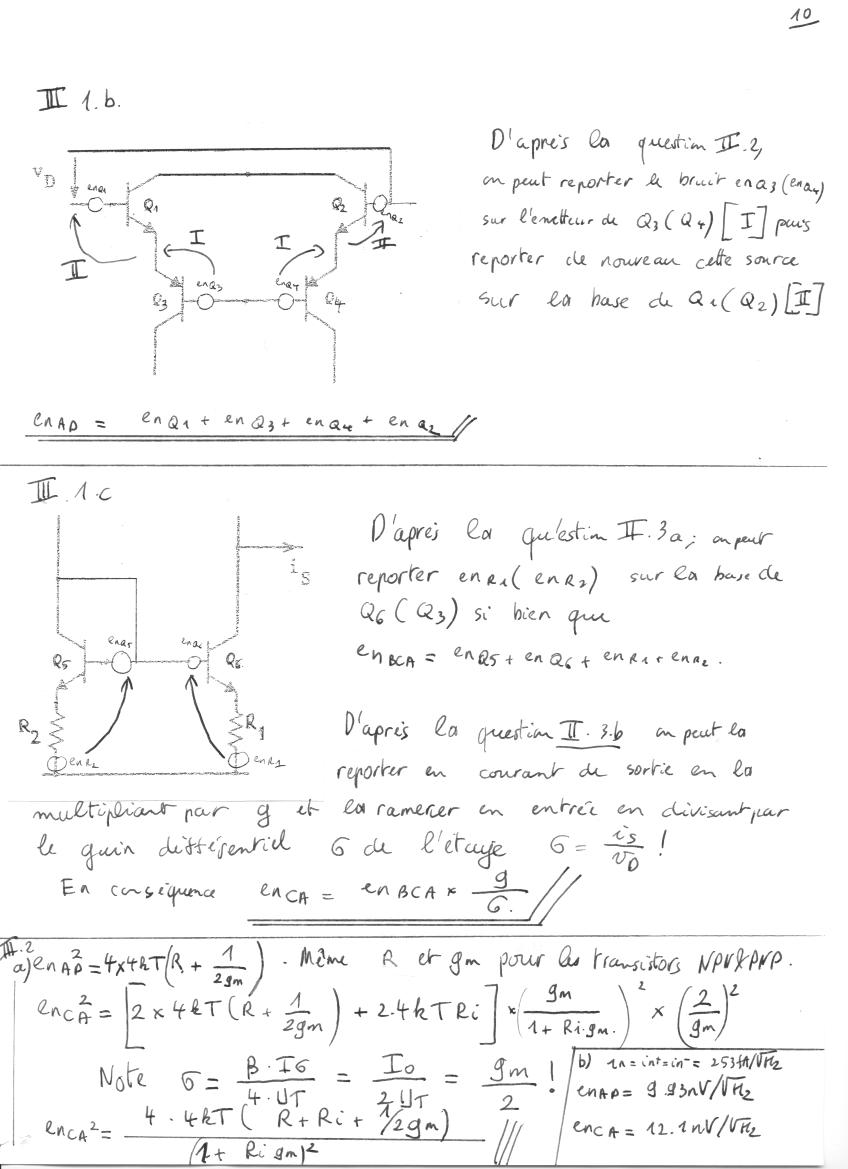 10
III 1.b.
D'après la question II.2,
on peut reporter le bruit enQ3 (enQ4)
sur l'émetteur de Q3 (Q4) [I] puis
reporter de nouveau cette source
sur la base de Q1 (Q2) [II]
VD
enQ1
Q1
Q2
enQ2
I
I
II
II
enQ3
enQ4
Q3
Q4
enAD = enQ1 + enQ3 + enQ4 + enQ2
III.1.c
D'après la qu'estion II.3a; on peut
reporter enR1 (enR2) sur la base de
Q6 (Q3) si bien que
enBCA = enQ5 + enQ6 + enR1 + enR2.
iS
enQ5
Q5
Q6
R2
R1
enR2
enR1
D'après la question II.3.b on peut la
reporter en courant de sortie en la
multipliant par g et la ramener en entrée en divisant par
le gain différentiel G de l'étage G = is/vD !
En conséquence enCA = enBCA × g/G.
III.2
a) enAD² = 4×4kT(R + 1/2gm). Même R et gm pour les transistors NPN & PNP.
enCA² = [2 × 4kT(R + 1/2gm) + 2.4kTRi] × (gm/1 + Ri.gm.)² × (2/gm)²
Note G = β.IG/4.UT = I0/2UT = gm/2 !
enCA² = 4.4kT(R + Ri + 1/2gm)/(1 + Ri gm)²
b) in = in+ = in- = 253fA/√Hz
enAD = 9.93nV/√Hz
enCA = 12.1nV/√Hz